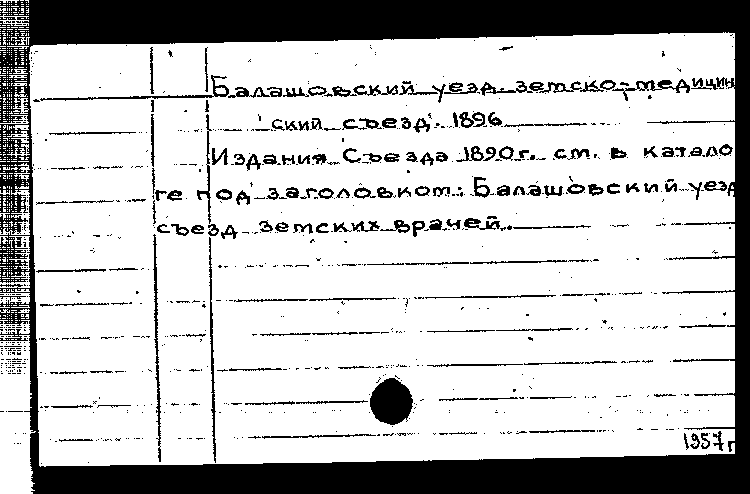 Балашовский уезд. земско-медицин
ский съезд. 1896
Издания Съезда 1890г. см. в катало
ге под заголовком: Балашовский уезд
съезд земских врачей.
1957г